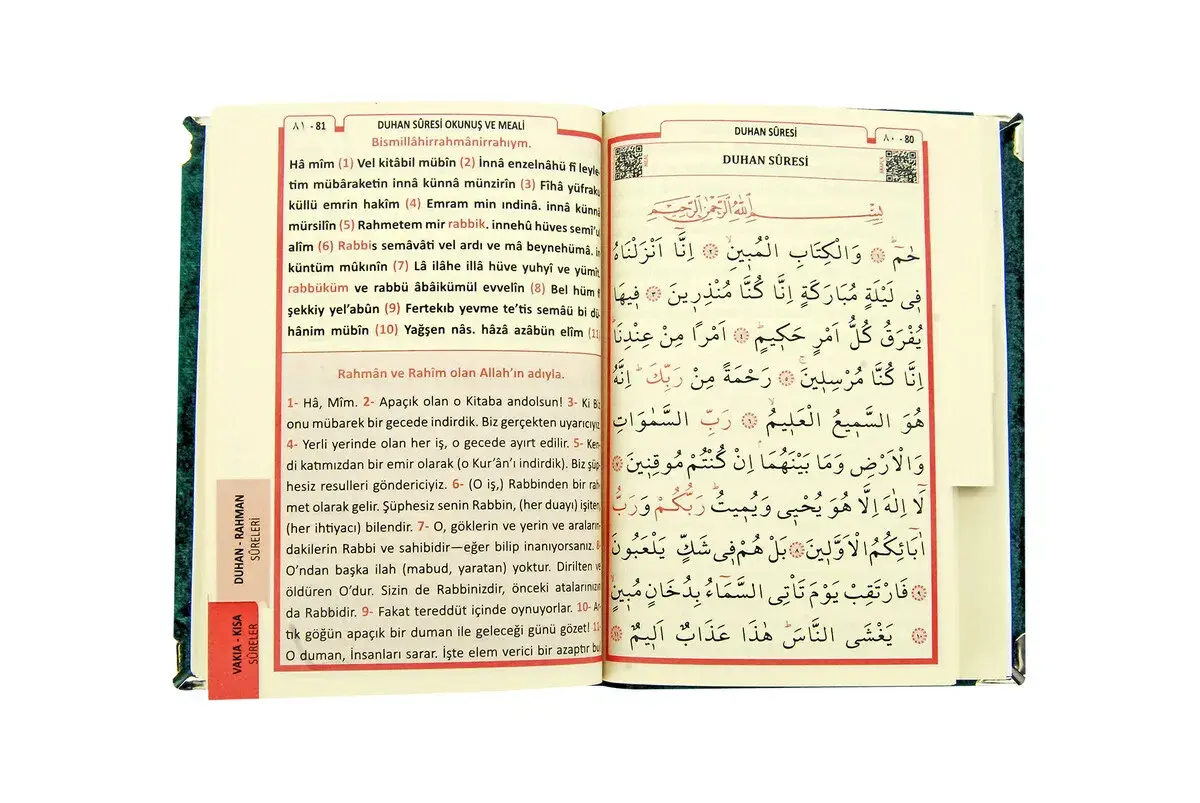 DUHAN SÛRESİ
٨٠ - 80
DUHAN SÛRESİ
بِسْمِ اللّٰهِ الرَّحْمٰنِ الرَّحِيمِ
حٰمٓ ﴿١﴾ وَالْكِتَابِ الْمُبٖينِۙ ﴿٢﴾ اِنَّٓا اَنْزَلْنَاهُ
فٖي لَيْلَةٍ مُبَارَكَةٍ اِنَّا كُنَّا مُنْذِرٖينَ ﴿٣﴾ فٖيهَا
يُفْرَقُ كُلُّ اَمْرٍ حَكٖيمٍۜ ﴿٤﴾ اَمْرًا مِنْ عِنْدِنَاۜ
اِنَّا كُنَّا مُرْسِلٖينَۚ ﴿٥﴾ رَحْمَةً مِنْ رَبِّكَۜ اِنَّهُ
هُوَ السَّمٖيعُ الْعَلٖيمُۙ ﴿٦﴾ رَبِّ السَّمٰوَاتِ
وَالْاَرْضِ وَمَا بَيْنَهُمَاۢ اِنْ كُنْتُمْ مُوقِنٖينَ ﴿٧﴾
لَٓا اِلٰهَ اِلَّا هُوَ يُحْيٖي وَيُمٖيتُۜ رَبُّكُمْ وَرَبُّ
اٰبَٓائِكُمُ الْاَوَّلٖينَ ﴿٨﴾ بَلْ هُمْ فٖي شَكٍّ يَلْعَبُونَ
﴿٩﴾ فَارْتَقِبْ يَوْمَ تَأْتِي السَّمَٓاءُ بِدُخَانٍ مُبٖينٍۙ
﴿١٠﴾ يَغْشَى النَّاسَۜ هٰذَا عَذَابٌ اَلٖيمٌ ﴿١١﴾
٨١ - 81
DUHAN SÛRESİ OKUNUŞ VE MEALİ
Bismillâhirrahmânirrahıym.
Hâ mîm (1) Vel kitâbil mübîn (2) İnnâ enzelnâhü fî leyle-
tim mübâraketin innâ künnâ münzirîn (3) Fîhâ yüfraku
küllü emrin hakîm (4) Emram min ındinâ. innâ künnâ
mürsilîn (5) Rahmetem mir rabbik. innehû hüves semî'ul
alîm (6) Rabbis semâvâti vel ardı ve mâ beynehümâ. in
küntüm mûkınîn (7) Lâ ilâhe illâ hüve yuhyî ve yümît.
rabbüküm ve rabbü âbâikümül evvelîn (8) Bel hüm fî
şekkiy yel'abûn (9) Fertekıb yevme te'tis semâü bi dü-
hânim mübîn (10) Yağşen nâs. hâzâ azâbün elîm (11)
Rahmân ve Rahîm olan Allah'ın adıyla.
1- Hâ, Mîm. 2- Apaçık olan o Kitaba andolsun! 3- Ki Biz
onu mübarek bir gecede indirdik. Biz gerçekten uyarıcıyız.
4- Yerli yerinde olan her iş, o gecede ayırt edilir. 5- Ken-
di katımızdan bir emir olarak (o Kur'ân'ı indirdik). Biz şüp-
hesiz resulleri göndericiyiz. 6- (O iş,) Rabbinden bir rah-
met olarak gelir. Şüphesiz senin Rabbin, (her duayı) işiten,
(her ihtiyacı) bilendir. 7- O, göklerin ve yerin ve araların-
dakilerin Rabbi ve sahibidir—eğer bilip inanıyorsanız. 8-
O'ndan başka ilah (mabud, yaratan) yoktur. Dirilten ve
öldüren O'dur. Sizin de Rabbinizdir, önceki atalarınızın
da Rabbidir. 9- Fakat tereddüt içinde oynuyorlar. 10- Ar-
tık göğün apaçık bir duman ile geleceği günü gözet! 11-
O duman, İnsanları sarar. İşte elem verici bir azaptır bu
DUHAN - RAHMAN
SÛRELERİ
VAKIA - KISA
SÛRELER